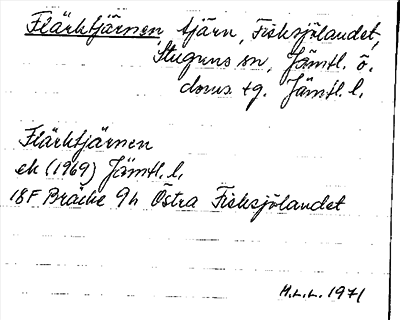 Flärktjärnen tjärn, Fisksjölandet,
Stuguns sn, Jämtl. ö.
doms tg. Jämtl. l.
Flärktjärnen
ek (1969) Jämtl. l.
18F Bräcke 9h Östra Fisksjölandet
H.L.L. 1971